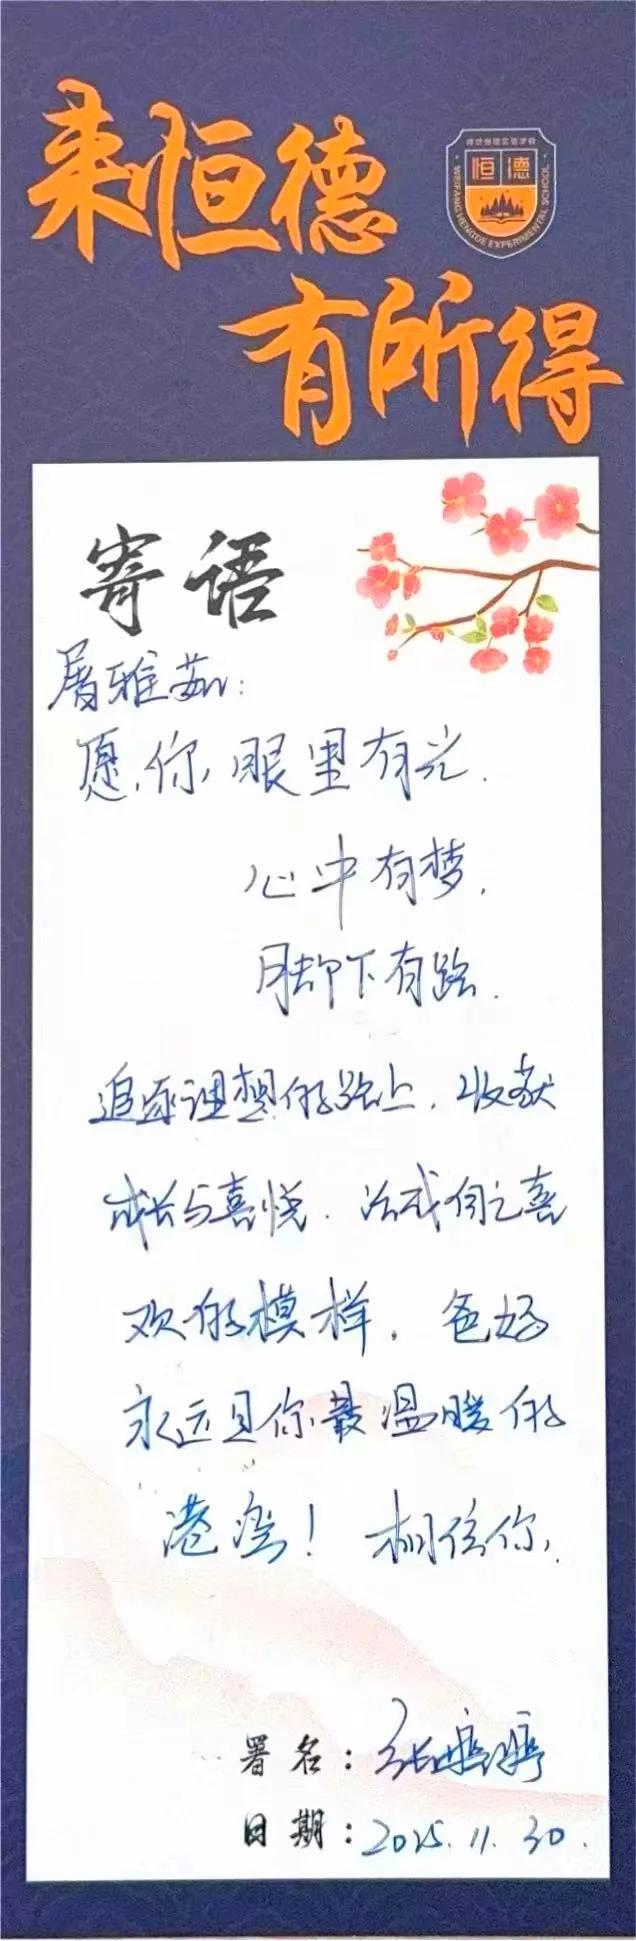 来恒德
有所得
潍坊恒德实验学校
恒德
WEIFANG HENGDE EXPERIMENTAL SCHOOL
寄语
屠雅茹:
愿你眼里有光.
心中有梦,
脚下有路.
追逐理想的路上,收获
成长与喜悦.活成自己喜
欢的模样.爸妈
永远是你最温暖的
港湾!相信你,
署名:张
日期:2025.11.30.